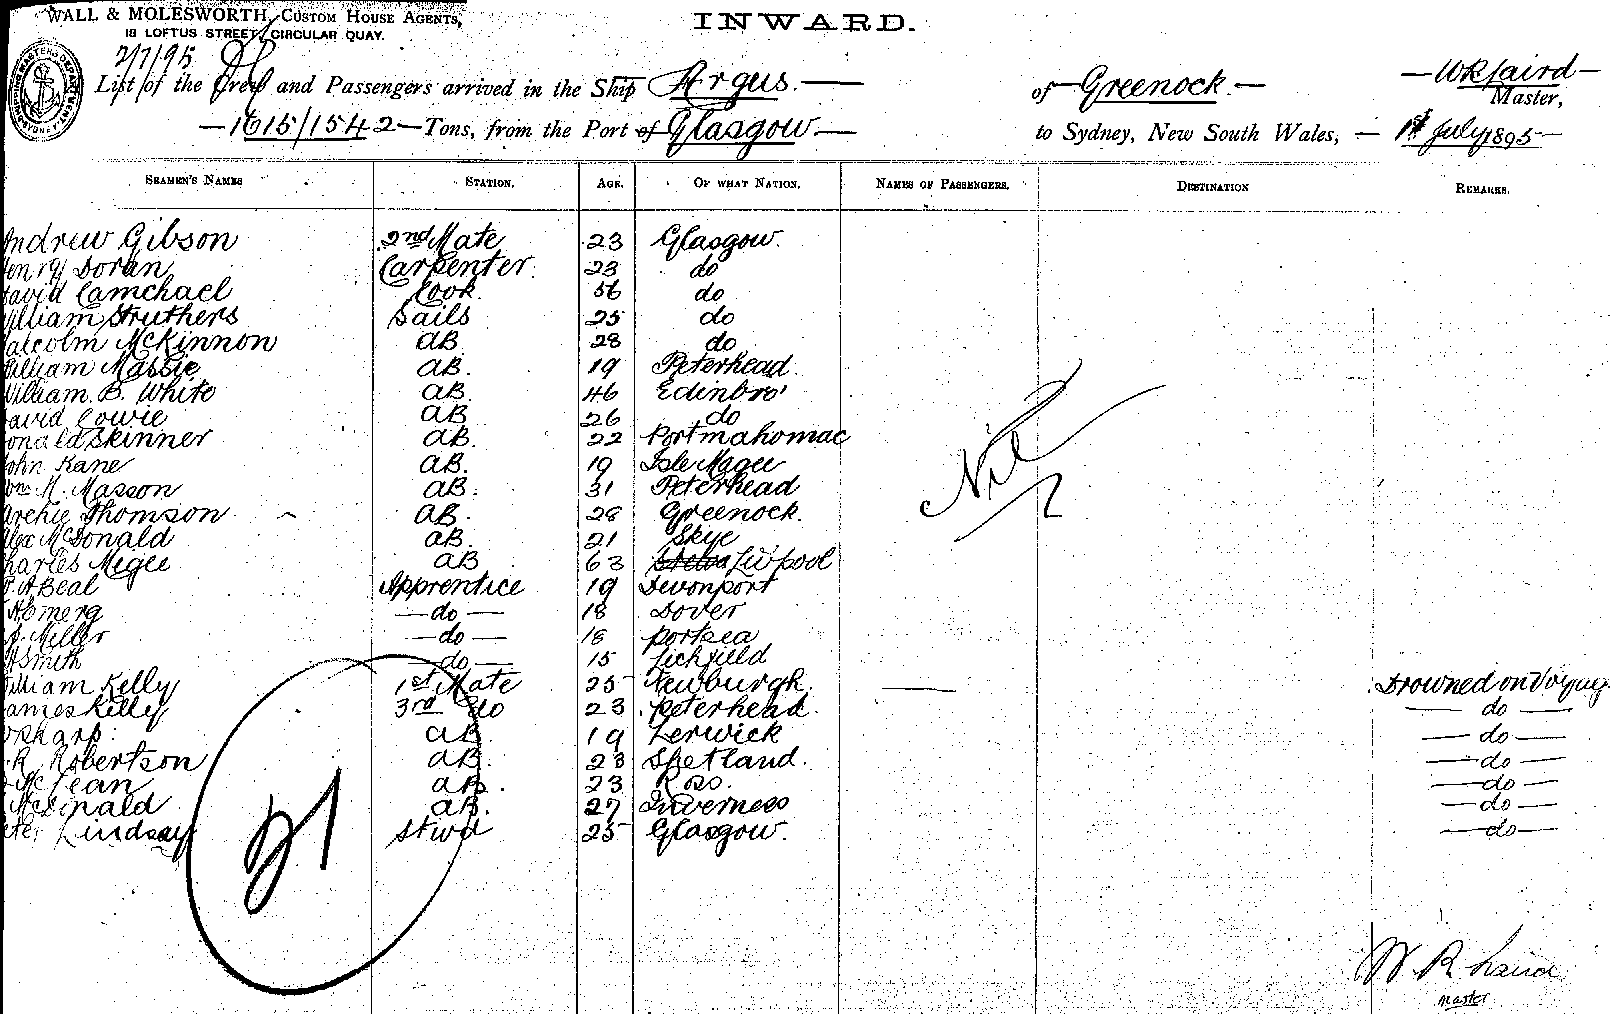 WALL & MOLESWORTH, CUSTOM HOUSE AGENTS,
18 LOFTUS STREET, CIRCULAR QUAY.
INWARD.
2/7/95
List of the Crew and Passengers arrived in the Ship Argus. of Greenock. W R Laird Master,
1615/1542 Tons, from the Port of Glasgow to Sydney, New South Wales, 1st July 1895
SEAMEN'S NAMES STATION. AGE. OF WHAT NATION. NAMES OF PASSENGERS. DESTINATION REMARKS.
ndrew Gibson 2nd Mate 23 Glasgow.
enry Doran Carpenter. 23 do
avid Camchael Cook. 56 do
illiam Struthers Sails 25 do
alcolm McKinnon AB 28 do
illiam Massie AB. 19 Peterhead.
William. B. White AB. 46 Edinbro'
avid Cowie AB 26 do
onald Skinner AB. 22 Portmahomac
ohn Kane AB. 19 Isle Magee
M. Masson AB. 31 Peterhead
rchie Thomson AB. 28 Greenock.
lex McDonald AB. 21 Skye
harles Megee AB 63 Livpool
A Beal Apprentice 19 Devonport
do 18 Dover
Miller do 18 Portsea
Smith do 15 Lichfield
illiam Kelly 1st Mate 25 Newburgh. Drowned on Voyag
ames Kelly 3rd do 23 Peterhead. do
Sharp. AB 19 Lerwick do
R. Robertson AB. 23 Shetland. do
McLean AB. 23 Ross. do
McDonald AB. 27 Inverness do
eter Lindsay Stwd 25 Glasgow. do
Nil
W R Laird
Master